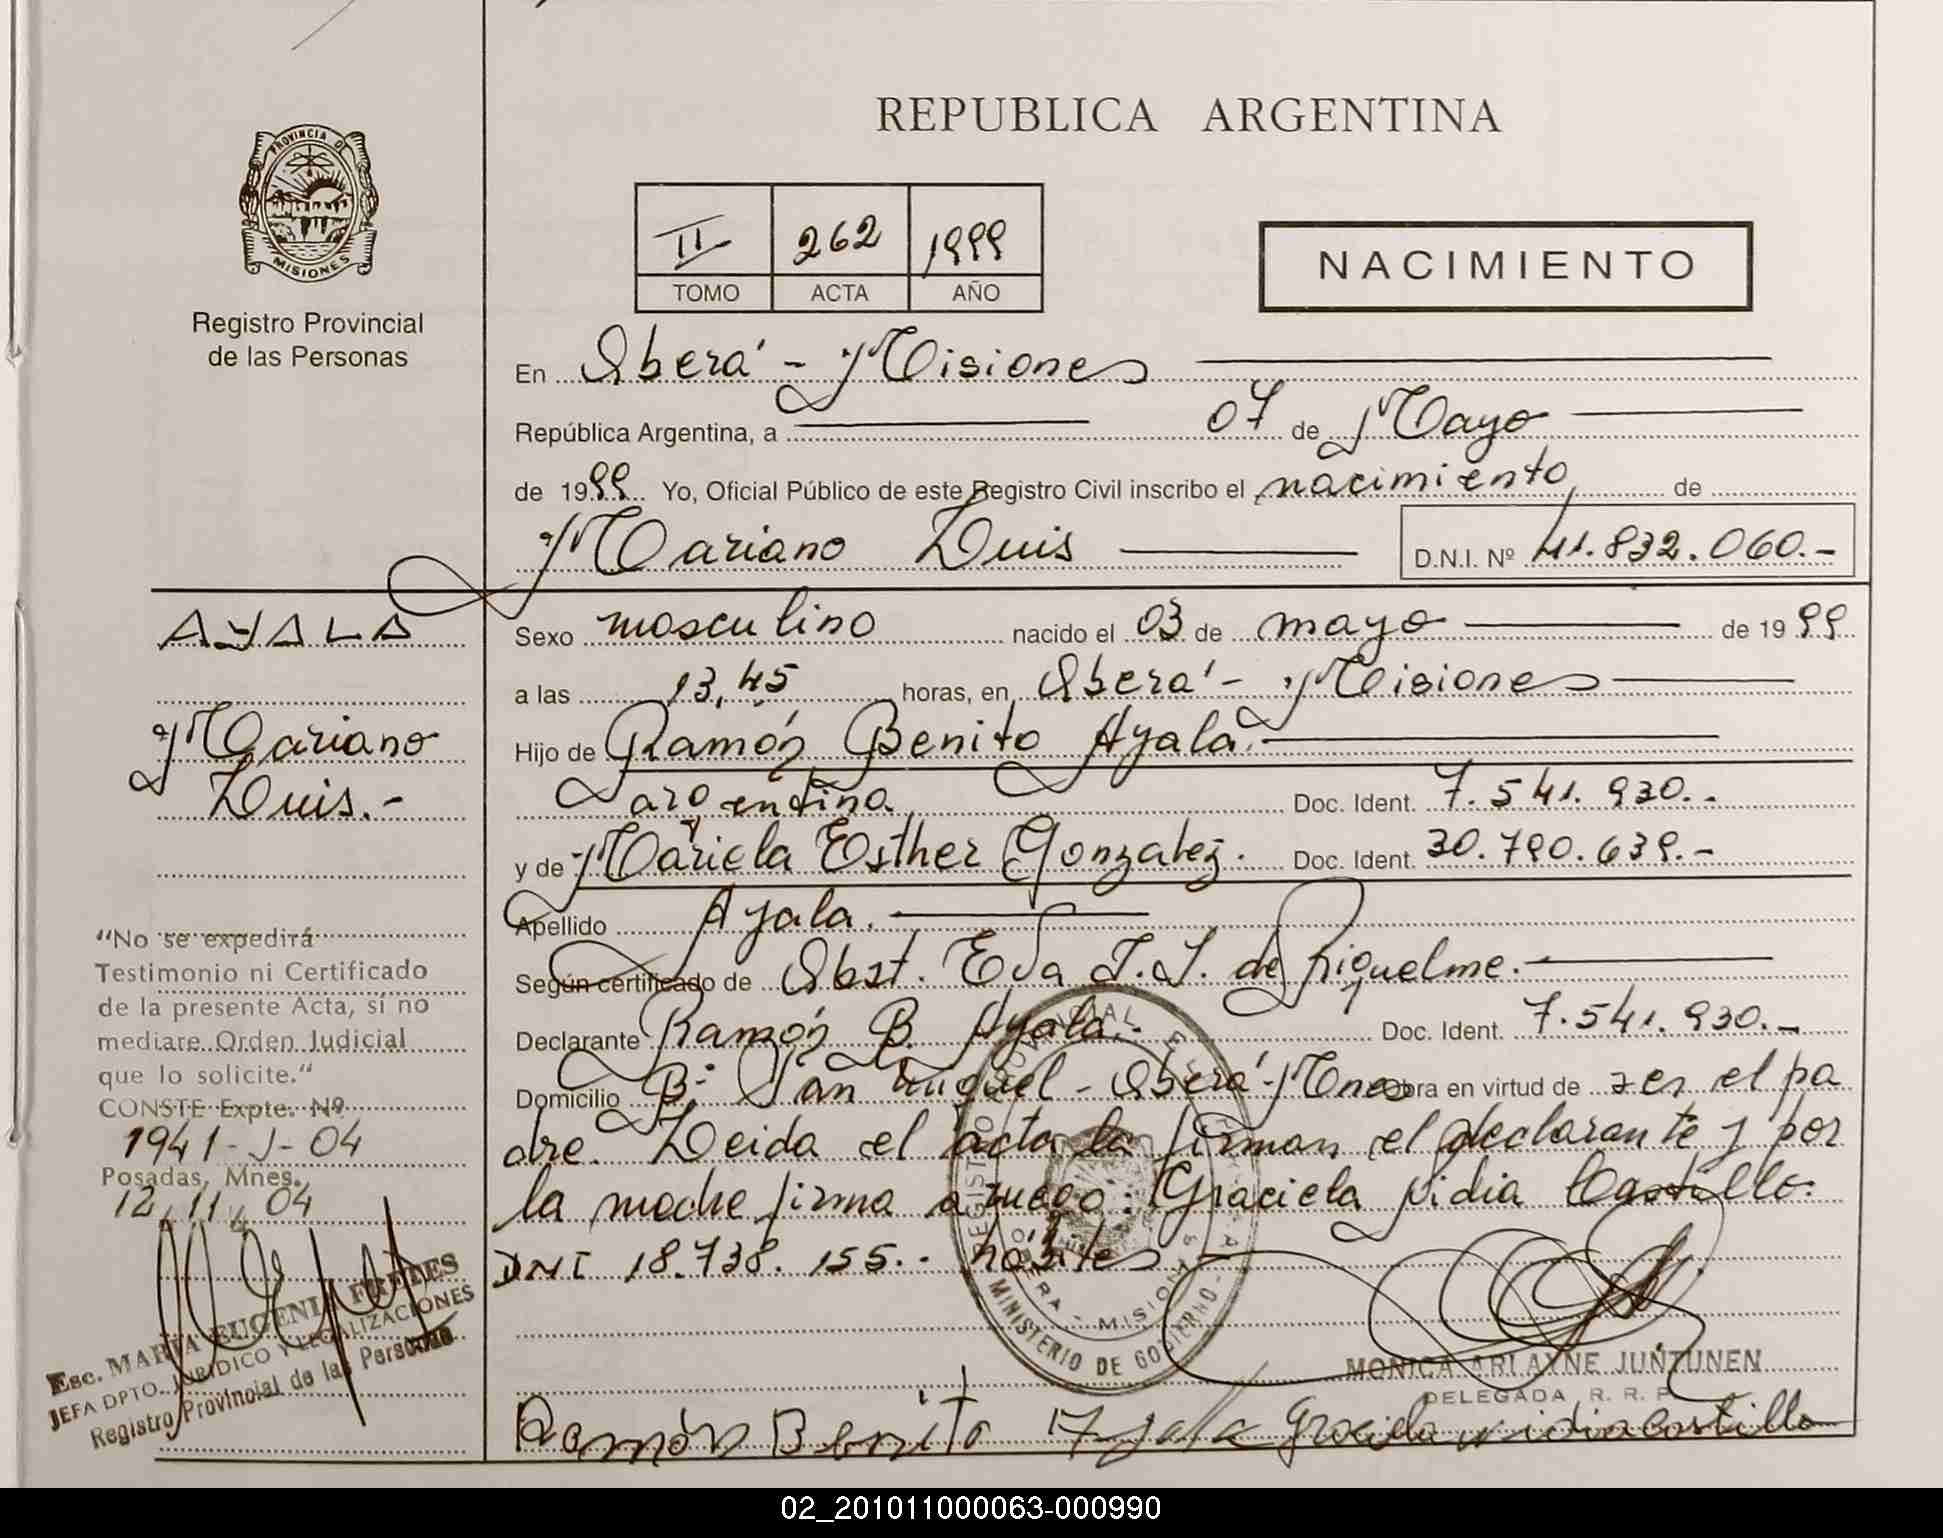 REPUBLICA ARGENTINA
PROVINCIA DE
MISIONES
Registro Provincial
de las Personas
II 262 1999
TOMO ACTA AÑO
NACIMIENTO
En Oberá - Misiones
República Argentina, a 07 de Mayo
de 1999 Yo, Oficial Público de este Registro Civil inscribo el nacimiento de
Mariano Luis D.N.I. Nº 41.832.060.-
AYALA
Mariano
Luis.-
Sexo masculino nacido el 03 de mayo de 1999
a las 13,45 horas, en Oberá - Misiones
Hijo de Ramón Benito Ayala.
argentino Doc. Ident. 7.541.930.-
y de Mariela Esther Gonzalez. Doc. Ident. 30.790.639.-
Apellido Ayala.
Según certificado de Obst. Eva J. de Riquelme.
Declarante Ramón B. Ayala. Doc. Ident. 7.541.930.-
Domicilio Bº San Miguel - Oberá - Mnes Obra en virtud de ser el pa
dre. Leida el acta la firman el declarante y por
la madre firma a ruego: Graciela Lidia Castillo.
DNI 18.738.155.- hábiles
"No se expedirá
Testimonio ni Certificado
de la presente Acta, sí no
mediare Orden Judicial
que lo solicite."
CONSTE Expte. Nº
1941-J-04
Posadas, Mnes.
12, 11, 04
Esc. MARIA EUGENIA FRETES
JEFA DPTO. JURIDICO Y LEGALIZACIONES
Registro Provincial de las Personas
MINISTERIO DE GOBIERNO
OBERA - MISIONES
MONICA ARLAYNE JUNTUNEN
DELEGADA R. R. P.
Ramón Benito Ayala Graciela Lidia Castillo
02_201011000063-000990